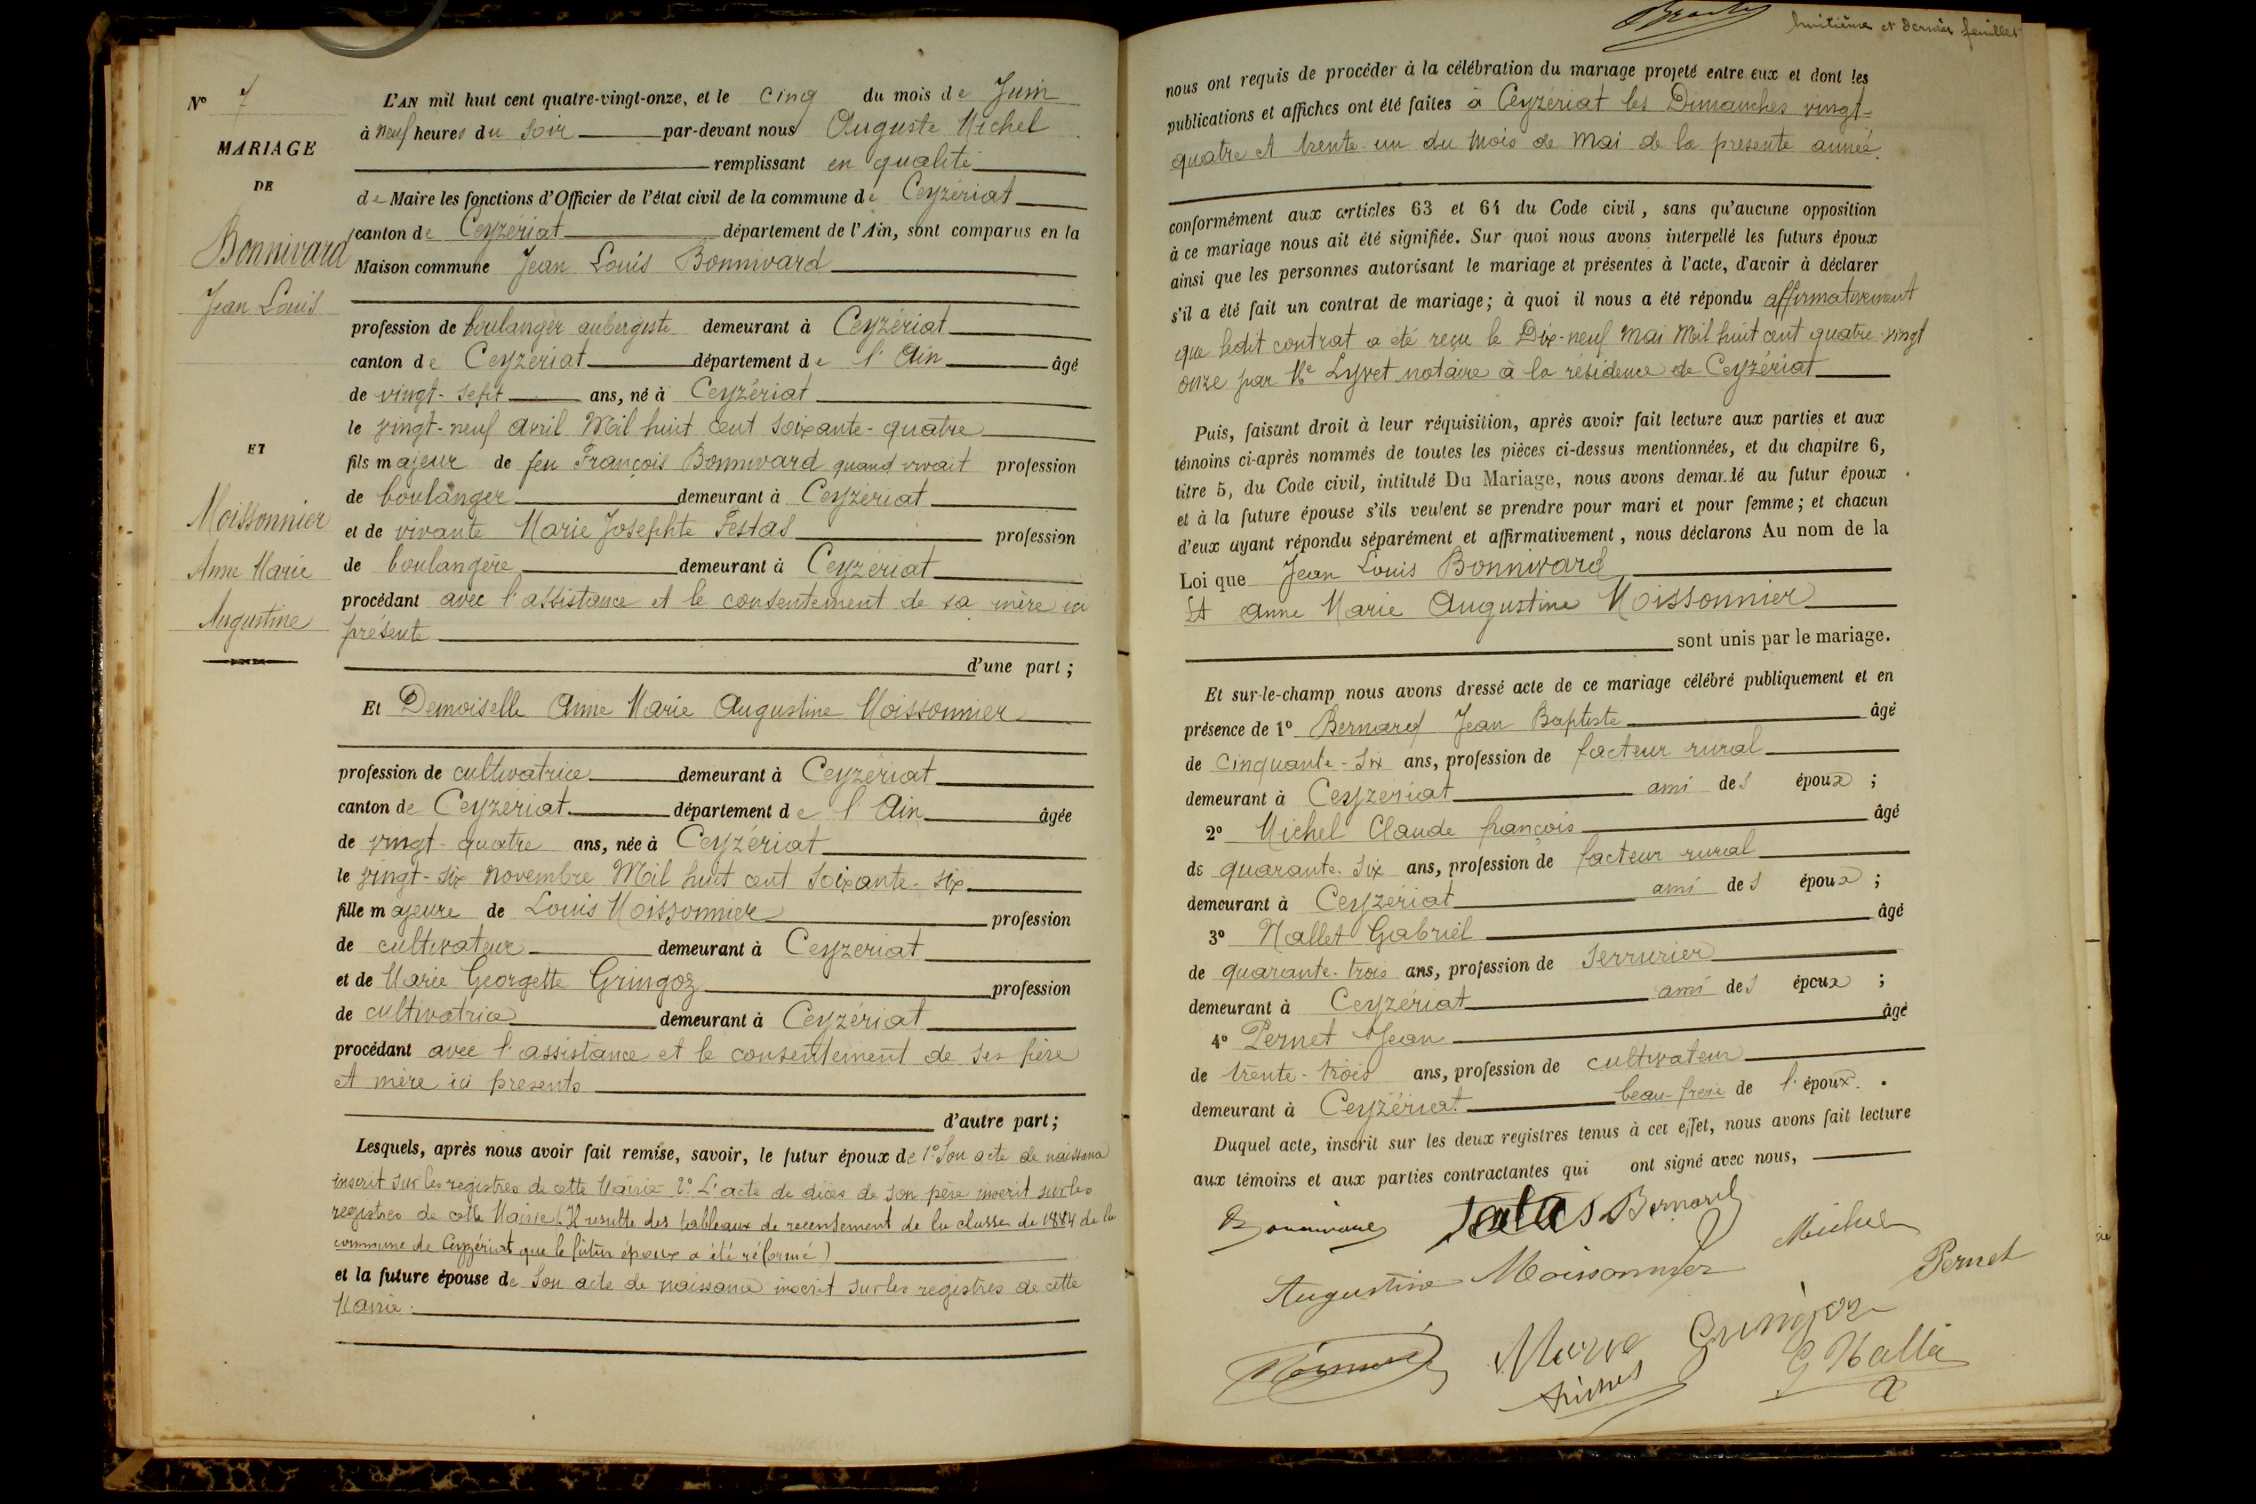 N° 7
MARIAGE
DE
Bonnivard
Jean Louis
ET
Moissonnier
Anne Marie
Augustine
L'AN mil huit cent quatre-vingt-onze, et le cinq du mois de Juin
à neuf heures du soir par-devant nous Auguste Michel
remplissant en qualité
de Maire les fonctions d'Officier de l'état civil de la commune de Ceyzériat
canton de Ceyzériat département de l'Ain, sont comparus en la
Maison commune Jean Louis Bonnivard
profession de boulanger aubergiste demeurant à Ceyzériat
canton de Ceyzériat département de l'Ain âgé
de vingt-sept ans, né à Ceyzériat
le vingt-neuf avril Mil huit cent soixante-quatre
fils majeur de feu François Bonnivard quand vivait profession
de boulanger demeurant à Ceyzériat
et de vivante Marie Josephte Festas profession
de boulangère demeurant à Ceyzériat
procédant avec l'assistance et le consentement de sa mère ici
présente
d'une part ;
Et Demoiselle Anne Marie Augustine Moissonnier
profession de cultivatrice demeurant à Ceyzériat
canton de Ceyzériat département de l'Ain âgée
de vingt-quatre ans, née à Ceyzériat
le vingt-six novembre Mil huit cent soixante-six
fille majeure de Louis Moissonnier profession
de cultivateur demeurant à Ceyzeriat
et de Marie Georgette Gringoz profession
de cultivatrice demeurant à Ceyzériat
procédant avec l'assistance et le consentement de ses père
et mère ici presents
d'autre part ;
Lesquels, après nous avoir fait remise, savoir, le futur époux de 1° Son acte de naissance
inscrit sur les registres de cette Mairie 2° L'acte de décès de son père inscrit sur les
registres de cette Mairie (Il resulte des tableaux de recensement de la classe de 1884 de la
commune de Ceyzériat que le futur époux a été réformé)
et la future épouse de Son acte de naissance inscrit sur les registres de cette
Mairie.
huitième et dernier feuillet
nous ont requis de procéder à la célébration du mariage projeté entre eux et dont les
publications et affiches ont été faites à Ceyzériat les Dimanches vingt-
quatre et trente-un du mois de Mai de la presente année.
conformément aux articles 63 et 64 du Code civil, sans qu'aucune opposition
à ce mariage nous ait été signifiée. Sur quoi nous avons interpellé les futurs époux
ainsi que les personnes autorisant le mariage et présentes à l'acte, d'avoir à déclarer
s'il a été fait un contrat de mariage ; à quoi il nous a été répondu affirmativement
que ledit contrat a été reçu le Dix-neuf Mai Mil huit cent quatre-vingt
onze par Me Lyvet notaire à la résidence de Ceyzériat
Puis, faisant droit à leur réquisition, après avoir fait lecture aux parties et aux
témoins ci-après nommés de toutes les pièces ci-dessus mentionnées, et du chapitre 6,
titre 5, du Code civil, intitulé Du Mariage, nous avons demandé au futur époux
et à la future épouse s'ils veulent se prendre pour mari et pour femme ; et chacun
d'eux ayant répondu séparément et affirmativement, nous déclarons Au nom de la
Loi que Jean Louis Bonnivard
Et Anne Marie Augustine Moissonnier
sont unis par le mariage.
Et sur-le-champ nous avons dressé acte de ce mariage célébré publiquement et en
présence de 1° Bernard Jean Baptiste âgé
de Cinquante-six ans, profession de facteur rural
demeurant à Ceyzeriat ami des époux ;
2° Michel Claude françois âgé
de quarante-six ans, profession de facteur rural
demeurant à Ceyzériat ami des époux ;
3° Nallet Gabriel âgé
de quarante-trois ans, profession de Serrurier
demeurant à Ceyzériat ami des époux ;
4° Pernet Jean âgé
de trente-trois ans, profession de cultivateur
demeurant à Ceyzériat beau-frère de l'époux.
Duquel acte, inscrit sur les deux registres tenus à cet effet, nous avons fait lecture
aux témoins et aux parties contractantes qui ont signé avec nous,
Bonnivard Bernard
Michel
Augustine Moissonnier Pernet
Marie Gringoz
G Nallet